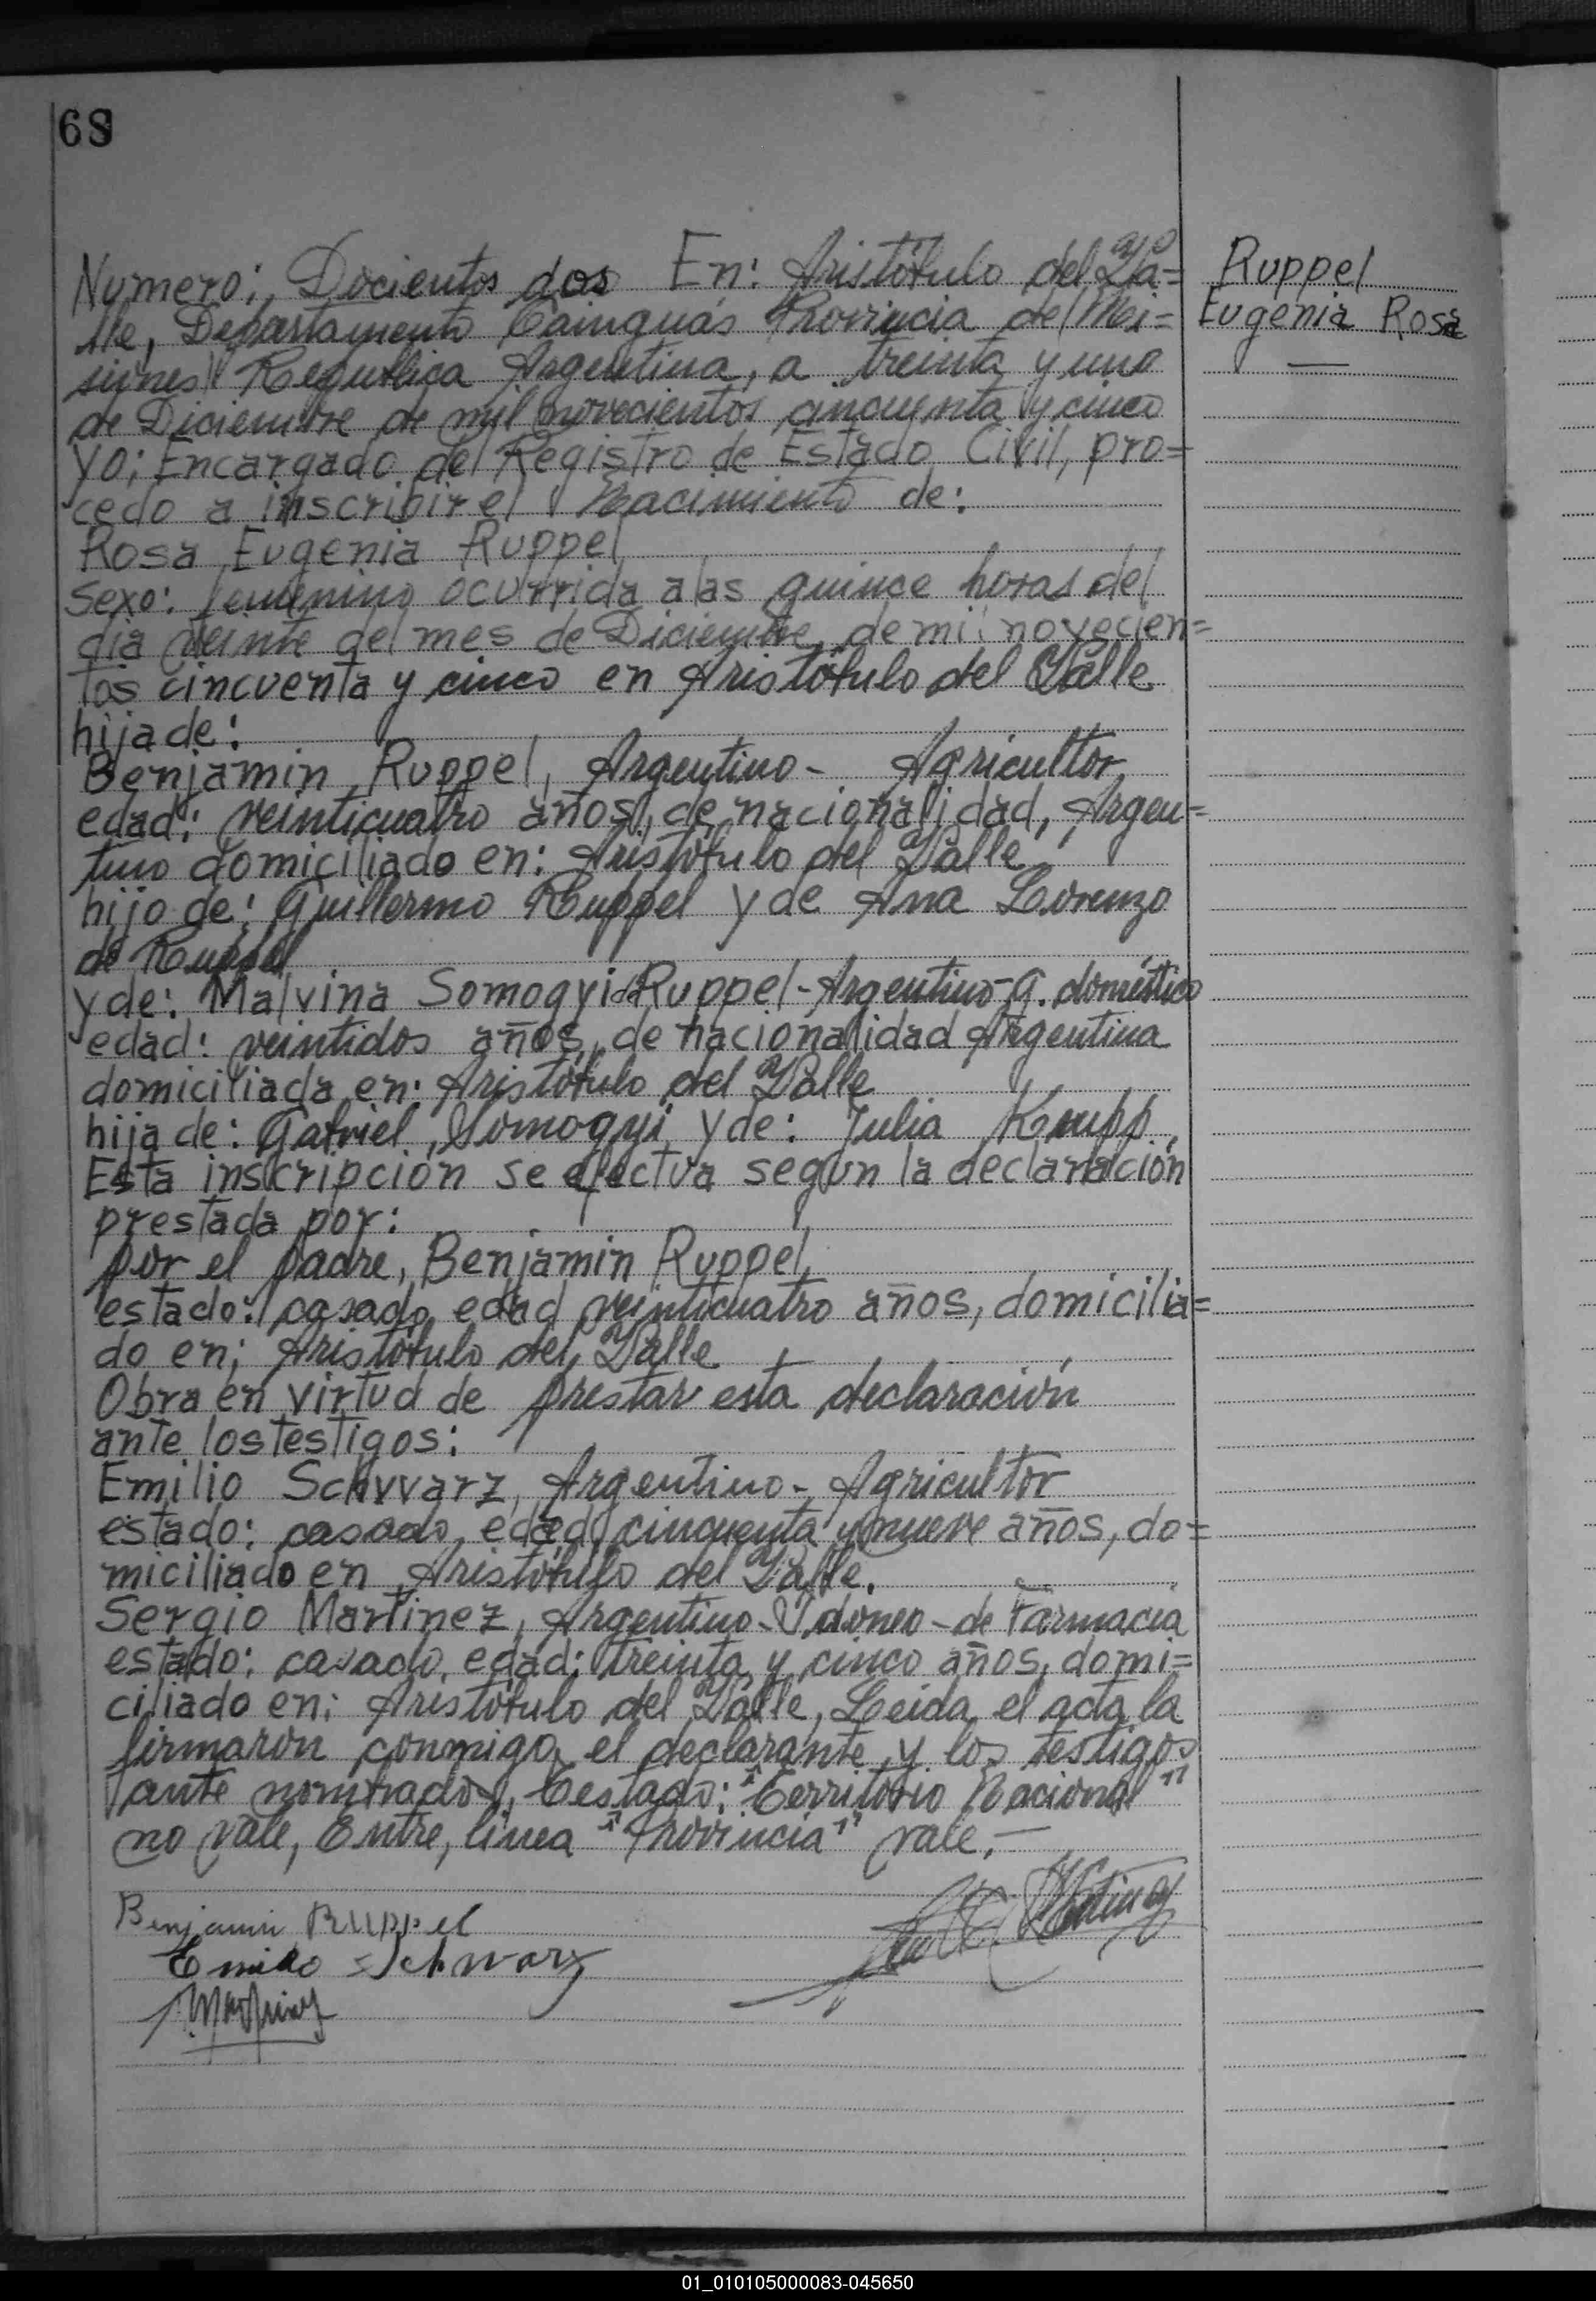 68
Numero: Docientos dos En: Aristóbulo del Va=
lle, Departamento Cainguás Provincia de Mi=
siones República Argentina, a treinta y uno
de Diciembre de mil novecientos cincuenta y cinco
yo; Encargado del Registro de Estado Civil, pro=
cedo a inscribir el Nacimiento de:
Rosa Eugenia Ruppel
Sexo: femenino ocurrida a las quince horas del
día veinte del mes de Diciembre de mil novecien=
tos cincuenta y cinco en Aristóbulo del Valle
hija de:
Benjamin Ruppel, Argentino - Agricultor
edad: veinticuatro años, de nacionalidad, Argen=
tino domiciliado en: Aristóbulo del Valle
hijo de: Guillermo Ruppel y de Ana Lorenzo
de Ruppel
y de: Malvina Somogyi de Ruppel - Argentino - q. doméstico
edad: veintidos años, de nacionalidad Argentina
domiciliada en: Aristóbulo del Valle
hija de: Gabriel Somogyi y de: Julia Krupp.
Esta inscripción se efectua según la declaración
prestada por:
por el padre, Benjamin Ruppel,
estado: casado, edad veinticuatro años, domicilia=
do en; Aristóbulo del Valle
Obra en virtud de prestar esta declaración
ante los testigos:
Emilio Schvvarz, Argentino - Agricultor
estado: casado, edad cincuenta y nueve años, do=
miciliado en Aristóbulo del Valle.
Sergio Martinez, Argentino - Idoneo - de Farmacia
estado: casado, edad: treinta y cinco años, domi=
ciliado en: Aristóbulo del Valle, Leida el acta la
firmaron conmigo el declarante y los testigos
ante nombrados, Testado: "Territorio Nacional"
no vale, Entre, línea "Provincia" vale. —
Benjamin Ruppel
Emilio Schwarz
S. Martinez
Ruppel
Eugenia Rosa
01_010105000083-045650